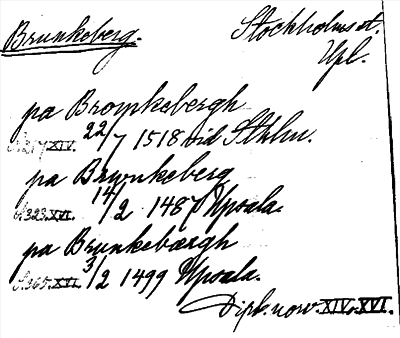 Brunkeberg.
Stockholms st.
Upl.
pa Brompkebergh
S. 217 XIV. 22/7 1518 vid Sthlm.
pa Brwnkeberg
S. 323. XVI. 14/2 1487 Upsala.
pa Brunkebærgh
S. 365. XVI. 3/2 1499 Upsala.
Dipl. norv. XIV. XVI.